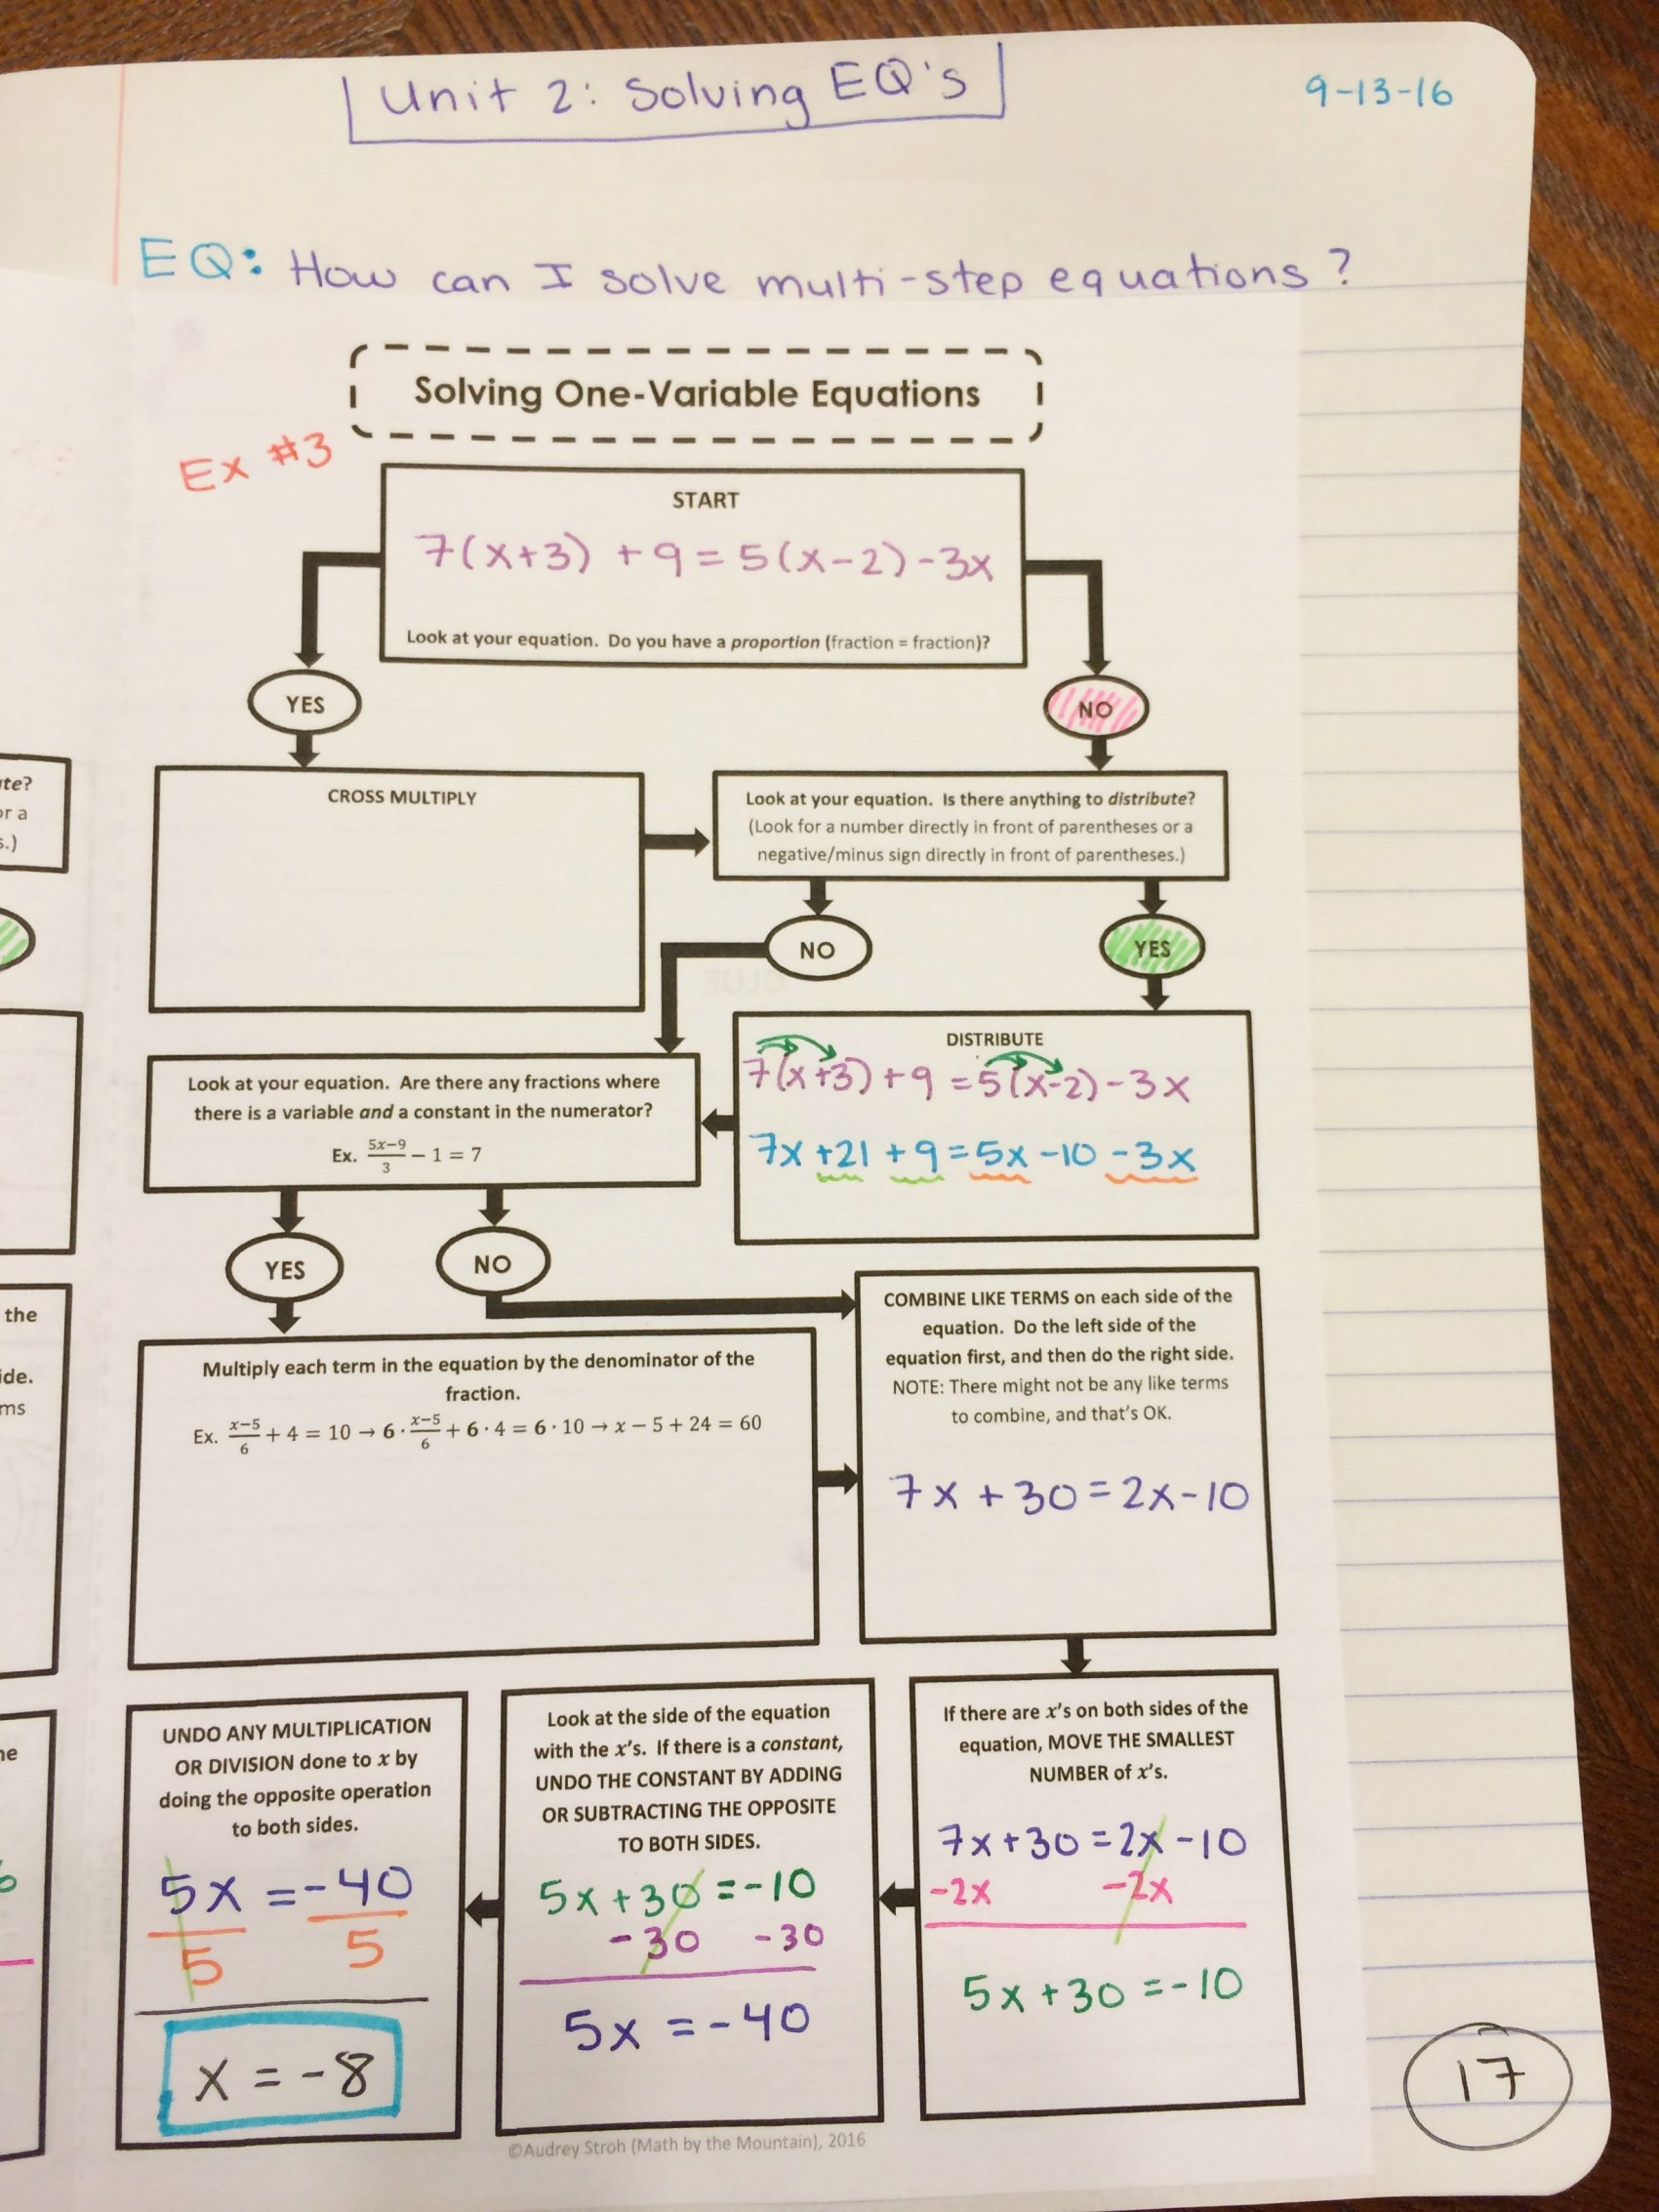 Unit 2: Solving EQ's
9-13-16
EQ: How can I solve multi-step equations?
Solving One-Variable Equations
Ex #3
START
7(x+3) +9=5(x-2)-3x
Look at your equation. Do you have a proportion (fraction = fraction)?
YES
NO
CROSS MULTIPLY
Look at your equation. Is there anything to distribute?
(Look for a number directly in front of parentheses or a
negative/minus sign directly in front of parentheses.)
NO
YES
DISTRIBUTE
7(x+3)+9=5(x-2)-3x
7x+21+9=5x-10-3x
Look at your equation. Are there any fractions where
there is a variable and a constant in the numerator?
Ex. (5x−9)/3 − 1 = 7
YES
NO
COMBINE LIKE TERMS on each side of the
equation. Do the left side of the
equation first, and then do the right side.
NOTE: There might not be any like terms
to combine, and that's OK.
7x+30=2x-10
Multiply each term in the equation by the denominator of the
fraction.
Ex. (x−5)/6 + 4 = 10 → 6 · (x−5)/6 + 6 · 4 = 6 · 10 → x − 5 + 24 = 60
If there are x's on both sides of the
equation, MOVE THE SMALLEST
NUMBER of x's.
7x+30=2x-10
-2x -2x
5x+30=-10
Look at the side of the equation
with the x's. If there is a constant,
UNDO THE CONSTANT BY ADDING
OR SUBTRACTING THE OPPOSITE
TO BOTH SIDES.
5x+30=-10
-30 -30
5x=-40
UNDO ANY MULTIPLICATION
OR DIVISION done to x by
doing the opposite operation
to both sides.
5x=-40
5 5
x=-8
©Audrey Stroh (Math by the Mountain), 2016
17
ate?
or a
s.)
the
ide.
ms